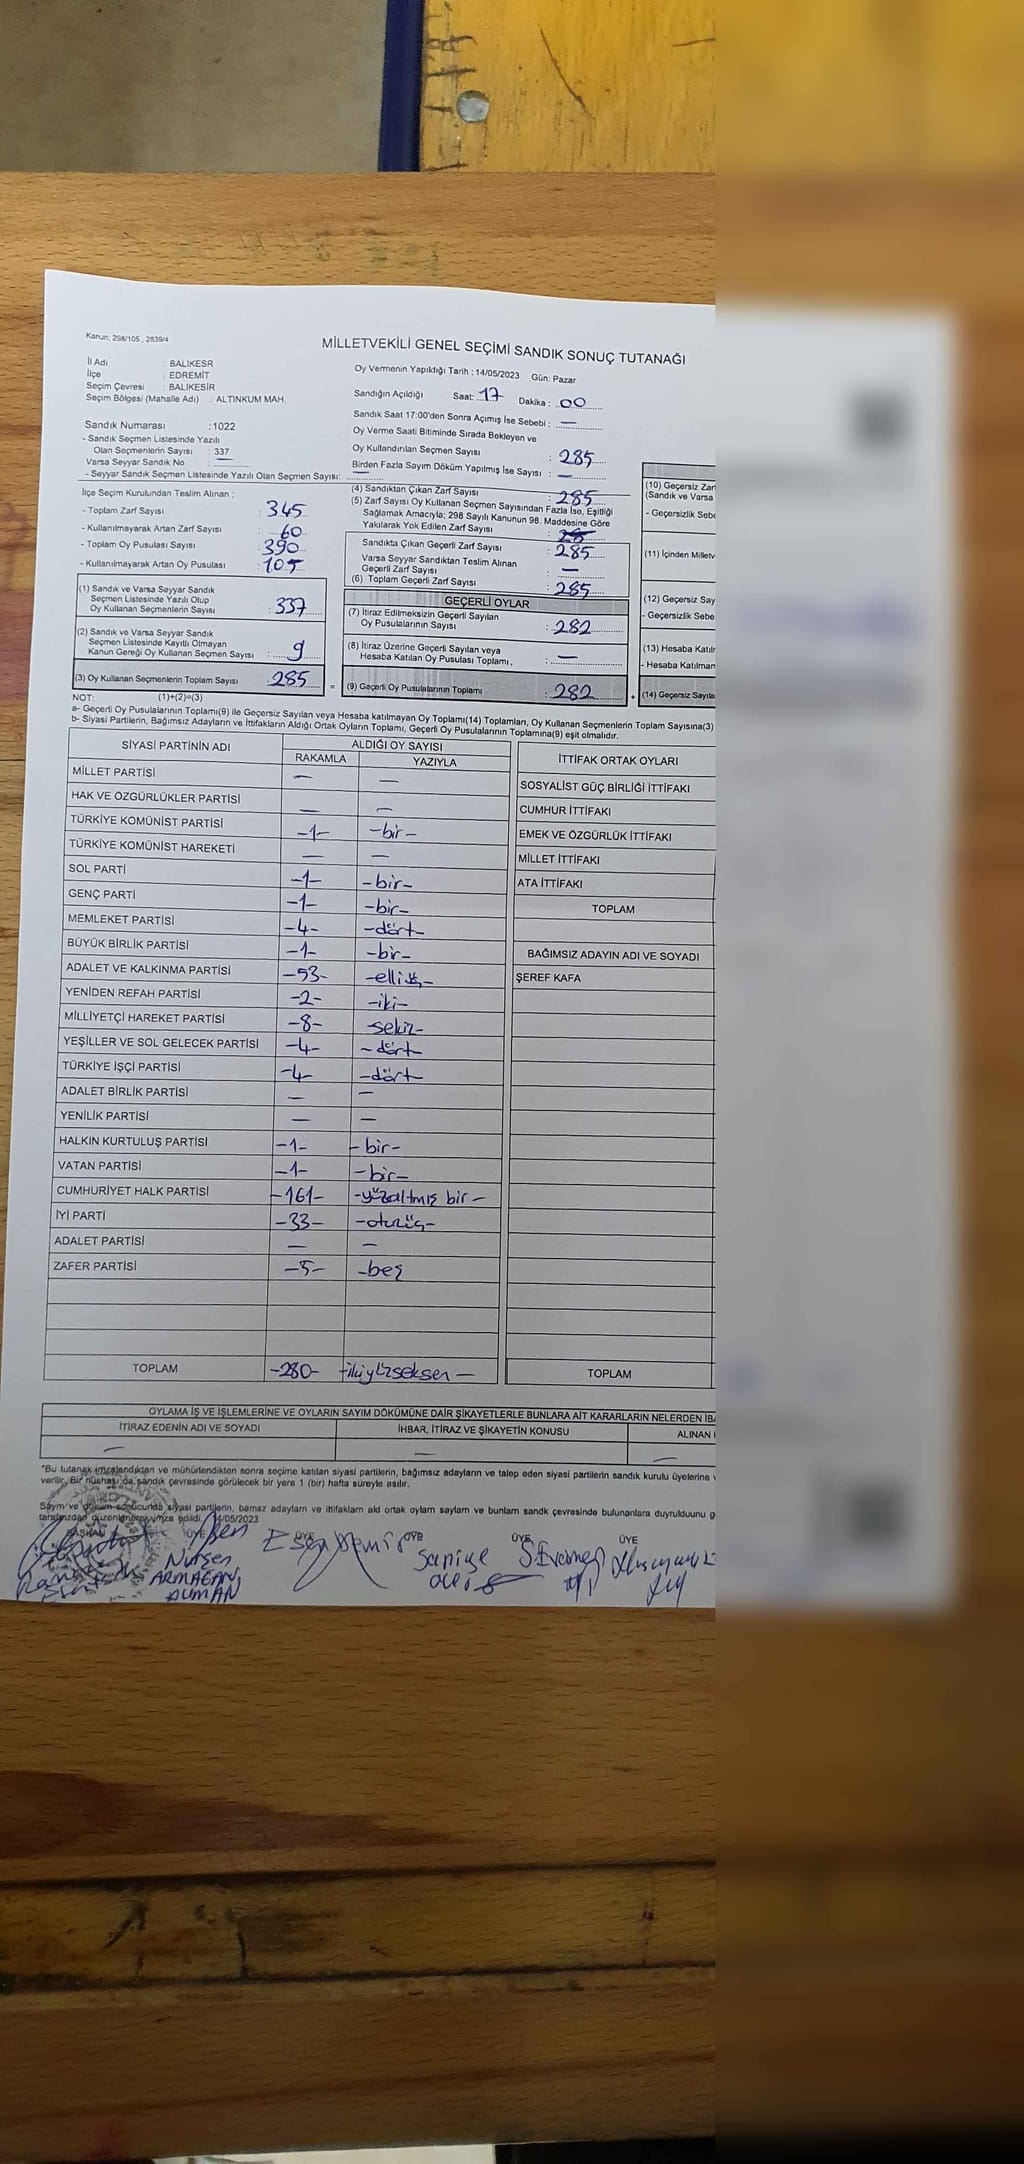 Kanun; 298/105 , 2839/4
MİLLETVEKİLİ GENEL SEÇİMİ SANDIK SONUÇ TUTANAĞI
İl Adı : BALIKESR
İlçe : EDREMİT
Seçim Çevresi : BALIKESİR
Seçim Bölgesi (Mahalle Adı) : ALTINKUM MAH.
Oy Vermenin Yapıldığı Tarih : 14/05/2023 Gün: Pazar
Sandığın Açıldığı Saat: 17 Dakika : 00
Sandık Saat 17:00'den Sonra Açımış İse Sebebi : —
Oy Verme Saati Bitiminde Sırada Bekleyen ve
Oy Kullandırılan Seçmen Sayısı : 285
Birden Fazla Sayım Döküm Yapılmış İse Sayısı : —
Sandık Numarası :1022
- Sandık Seçmen Listesinde Yazılı
Olan Seçmenlerin Sayısı : 337
Varsa Seyyar Sandık No : —
- Seyyar Sandık Seçmen Listesinde Yazılı Olan Seçmen Sayısı: —
İlçe Seçim Kurulundan Teslim Alınan ;
- Toplam Zarf Sayısı : 345
- Kullanılmayarak Artan Zarf Sayısı : 60
- Toplam Oy Pusulası Sayısı : 390
- Kullanılmayarak Artan Oy Pusulası : 105
(4) Sandıktan Çıkan Zarf Sayısı : 285
(5) Zarf Sayısı Oy Kullanan Seçmen Sayısından Fazla İse, Eşitliği
Sağlamak Amacıyla; 298 Sayılı Kanunun 98. Maddesine Göre
Yakılarak Yok Edilen Zarf Sayısı :
Sandıkta Çıkan Geçerli Zarf Sayısı : 285
Varsa Seyyar Sandıktan Teslim Alınan
Geçerli Zarf Sayısı : —
(6) Toplam Geçerli Zarf Sayısı : 285
(1) Sandık ve Varsa Seyyar Sandık
Seçmen Listesinde Yazılı Olup
Oy Kullanan Seçmenlerin Sayısı : 337
(2) Sandık ve Varsa Seyyar Sandık
Seçmen Listesinde Kayıtlı Olmayan
Kanun Gereği Oy Kullanan Seçmen Sayısı : 9
(3) Oy Kullanan Seçmenlerin Toplam Sayısı : 285 =
GEÇERLİ OYLAR
(7) İtiraz Edilmeksizin Geçerli Sayılan
Oy Pusulalarının Sayısı : 282
(8) İtiraz Üzerine Geçerli Sayılan veya
Hesaba Katılan Oy Pusulası Toplamı. : —
(9) Geçerli Oy Pusulalarının Toplamı : 282 +
(10) Geçersiz Zar
(Sandık ve Varsa
- Geçersizlik Sebe
(11) İçinden Milletv
(12) Geçersiz Say
- Geçersizlik Sebe
(13) Hesaba Katılr
- Hesaba Katılmar
(14) Geçersiz Sayıla
NOT: (1)+(2)=(3)
a- Geçerli Oy Pusulalarının Toplamı(9) ile Geçersiz Sayılan veya Hesaba katılmayan Oy Toplamı(14) Toplamları, Oy Kullanan Seçmenlerin Toplam Sayısına(3)
b- Siyasi Partilerin, Bağımsız Adayların ve İttifakların Aldığı Ortak Oyların Toplamı, Geçerli Oy Pusulalarının Toplamına(9) eşit olmalıdır.
SİYASİ PARTİNİN ADI ALDIĞI OY SAYISI
RAKAMLA YAZIYLA
MİLLET PARTİSİ — —
HAK VE ÖZGÜRLÜKLER PARTİSİ — —
TÜRKİYE KOMÜNİST PARTİSİ -1- -bir-
TÜRKİYE KOMÜNİST HAREKETİ — —
SOL PARTİ -1- -bir-
GENÇ PARTİ -1- -bir-
MEMLEKET PARTİSİ -4- -dört
BÜYÜK BİRLİK PARTİSİ -1- -bir-
ADALET VE KALKINMA PARTİSİ -53- -elliüç-
YENİDEN REFAH PARTİSİ -2- -iki-
MİLLİYETÇİ HAREKET PARTİSİ -8- -sekiz-
YEŞİLLER VE SOL GELECEK PARTİSİ -4- -dört
TÜRKİYE İŞÇİ PARTİSİ -4- -dört
ADALET BİRLİK PARTİSİ — —
YENİLİK PARTİSİ — —
HALKIN KURTULUŞ PARTİSİ -1- -bir-
VATAN PARTİSİ -1- -bir-
CUMHURİYET HALK PARTİSİ -161- -yüzaltmış bir-
İYİ PARTİ -33- -otuzüç-
ADALET PARTİSİ — —
ZAFER PARTİSİ -5- -beş
TOPLAM -280- -ikiyüzseksen-
İTTİFAK ORTAK OYLARI
SOSYALİST GÜÇ BİRLİĞİ İTTİFAKI
CUMHUR İTTİFAKI
EMEK VE ÖZGÜRLÜK İTTİFAKI
MİLLET İTTİFAKI
ATA İTTİFAKI
TOPLAM
BAĞIMSIZ ADAYIN ADI VE SOYADI
ŞEREF KAFA
TOPLAM
OYLAMA İŞ VE İŞLEMLERİNE VE OYLARIN SAYIM DÖKÜMÜNE DAİR ŞİKAYETLERLE BUNLARA AİT KARARLARIN NELERDEN İBA
İTİRAZ EDENİN ADI VE SOYADI İHBAR, İTİRAZ VE ŞİKAYETİN KONUSU ALINAN
— — —
"Bu tutanak imzalandıktan ve mühürlendikten sonra seçime katılan siyasi partilerin, bağımsız adayların ve talep eden siyasi partilerin sandık kurulu üyelerine
verilir. Bir nüshası da sandık çevresinde görülecek bir yere 1 (bir) hafta süreyle asılır.
Saym ve döküm sonucunda siyasi partilerin, bamsz adaylarn ve ittifaklarn ald ortak oylarn saylarn ve bunlarn sandk çevresinde bulunanlara duyrulduunu g
tarafmzdan düzenlenerek imza edildi. 14/05/2023
BAŞKAN ÜYE ÜYE ÜYE ÜYE ÜYE
Nurşen
ARMAĞAN
DUMAN
Esen Demir
Saniye